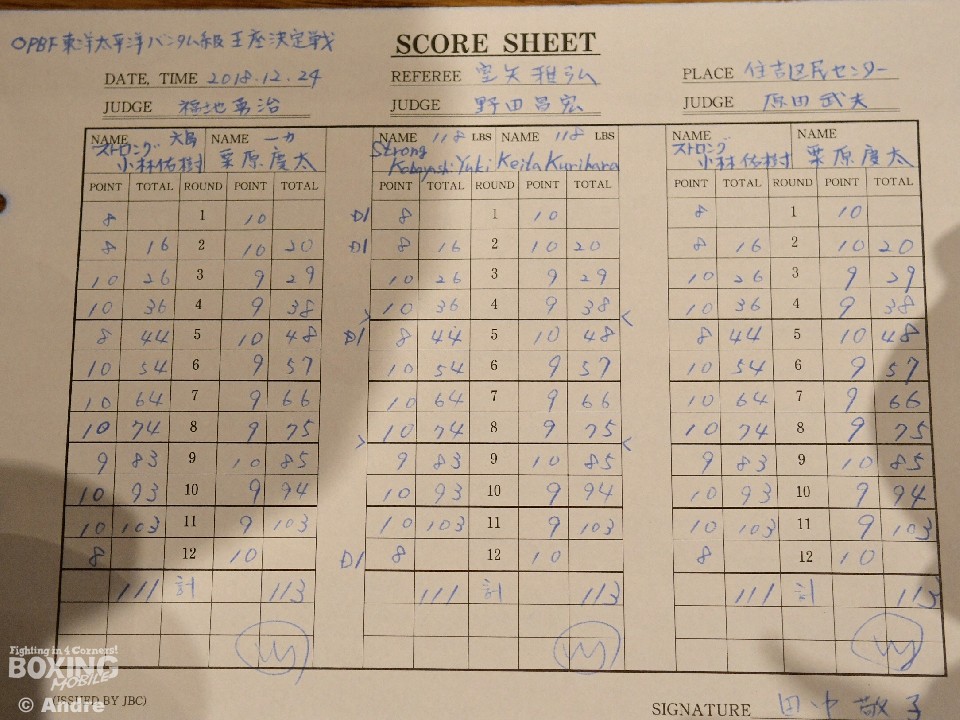 OPBF東洋太平洋バンタム級王座決定戦
SCORE SHEET
DATE, TIME 2018.12.24 REFEREE 宮矢雅弘 PLACE 住吉区民センター
JUDGE 福地勇治 JUDGE 野田昌宏 JUDGE 原田武夫
NAME 大局 NAME 一力 NAME 118 LBS NAME 118 LBS NAME NAME
ストロング Strong ストロング
小林佑樹 栗原慶太 Kobayashi Yuki Keita Kurihara 小林佑樹 栗原慶太
POINT TOTAL ROUND POINT TOTAL POINT TOTAL ROUND POINT TOTAL POINT TOTAL ROUND POINT TOTAL
8 1 10 D1 8 1 10 8 1 10
8 16 2 10 20 D1 8 16 2 10 20 8 16 2 10 20
10 26 3 9 29 10 26 3 9 29 10 26 3 9 29
10 36 4 9 38 > 10 36 4 9 38 < 10 36 4 9 38
8 44 5 10 48 D1 8 44 5 10 48 8 44 5 10 48
10 54 6 9 57 10 54 6 9 57 10 54 6 9 57
10 64 7 9 66 10 64 7 9 66 10 64 7 9 66
10 74 8 9 75 > 10 74 8 9 75 < 10 74 8 9 75
9 83 9 10 85 9 83 9 10 85 9 83 9 10 85
10 93 10 9 94 10 93 10 9 94 10 93 10 9 94
10 103 11 9 103 10 103 11 9 103 10 103 11 9 103
8 12 10 D1 8 12 10 8 12 10
111 計 113 111 計 113 111 計 113
W W W
Fighting in 4 Corners!
BOXING
MOBILE
(ISSUED BY JBC)
© Andre
SIGNATURE 田中敬子